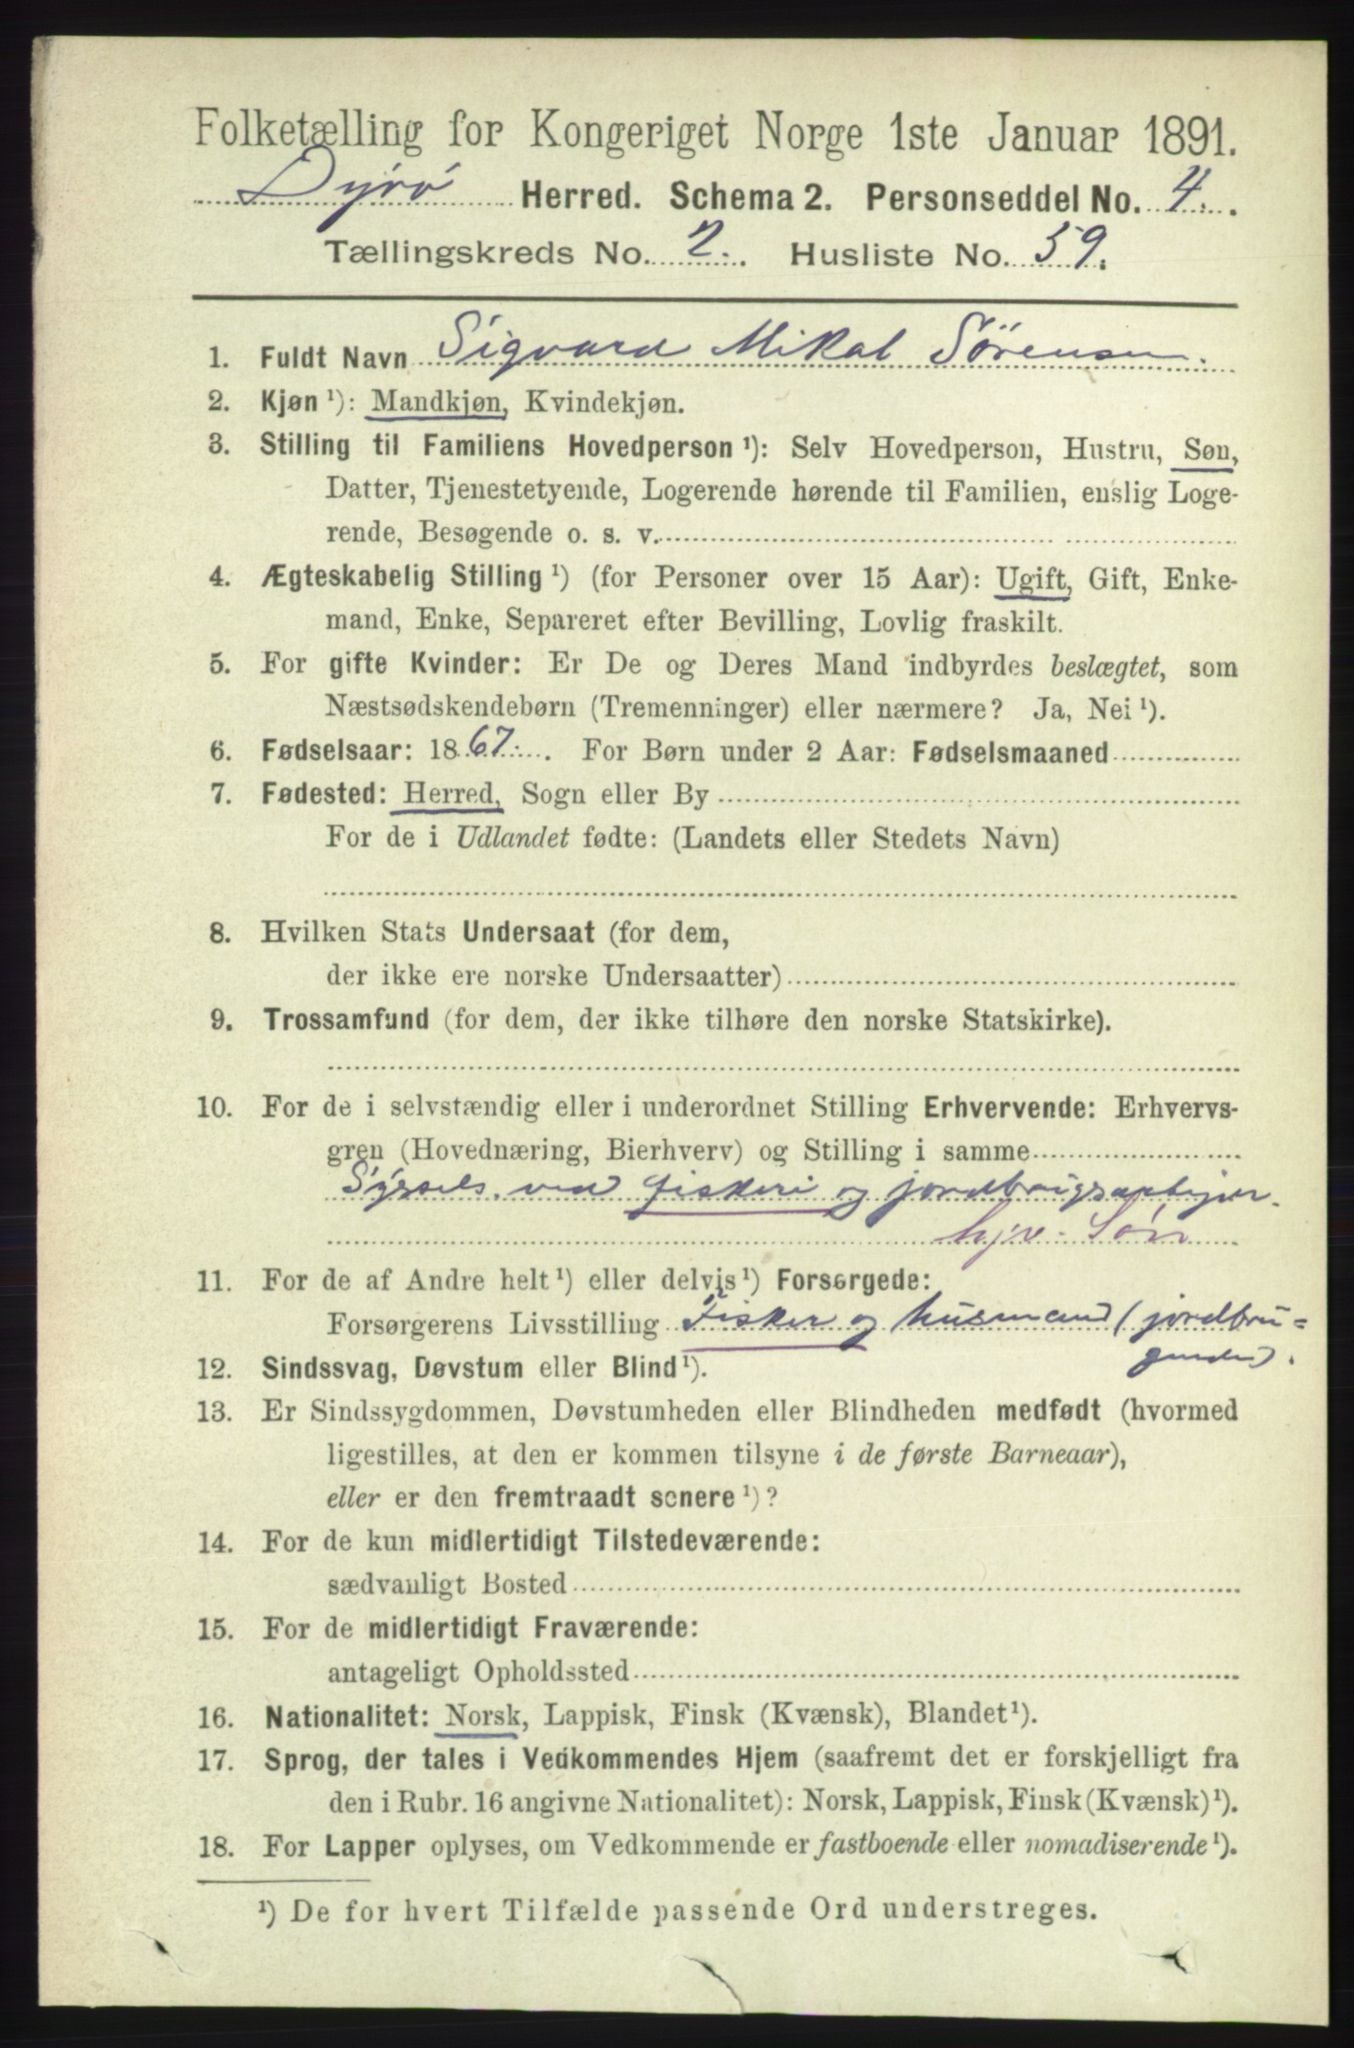 Folketælling for Kongeriget Norge 1ste Januar 1891.
Dyrø Herred. Schema 2. Personseddel No. 4.
Tællingskreds No. 2. Husliste No. 59.
1. Fuldt Navn Sigvard Mikal Sørensen.
2. Kjøn ¹): Mandkjøn, Kvindekjøn.
3. Stilling til Familiens Hovedperson ¹): Selv Hovedperson, Hustru, Søn,
Datter, Tjenestetyende, Logerende hørende til Familien, enslig Loge-
rende, Besøgende o. s. v.
4. Ægteskabelig Stilling ¹) (for Personer over 15 Aar): Ugift, Gift, Enke-
mand, Enke, Separeret efter Bevilling, Lovlig fraskilt.
5. For gifte Kvinder: Er De og Deres Mand indbyrdes beslægtet, som
Næstsødskendebørn (Tremenninger) eller nærmere? Ja, Nei ¹).
6. Fødselsaar: 1867. For Børn under 2 Aar: Fødselsmaaned
7. Fødested: Herred, Sogn eller By
For de i Udlandet fødte: (Landets eller Stedets Navn)
8. Hvilken Stats Undersaat (for dem,
der ikke ere norske Undersaatter)
9. Trossamfund (for dem, der ikke tilhøre den norske Statskirke).
10. For de i selvstændig eller i underordnet Stilling Erhvervende: Erhvervs-
gren (Hovednæring, Bierhverv) og Stilling i samme
Syssels. ved fiskeri og jordbrugsarbejder.
hjv. Søn
11. For de af Andre helt ¹) eller delvis ¹) Forsørgede:
Forsørgerens Livsstilling Fisker og husmand (jordbru-
gende).
12. Sindssvag, Døvstum eller Blind ¹).
13. Er Sindssygdommen, Døvstumheden eller Blindheden medfødt (hvormed
ligestilles, at den er kommen tilsyne i de første Barneaar),
eller er den fremtraadt senere ¹)?
14. For de kun midlertidigt Tilstedeværende:
sædvanligt Bosted
15. For de midlertidigt Fraværende:
antageligt Opholdssted
16. Nationalitet: Norsk, Lappisk, Finsk (Kvænsk), Blandet ¹).
17. Sprog, der tales i Vedkommendes Hjem (saafremt det er forskjelligt fra
den i Rubr. 16 angivne Nationalitet): Norsk, Lappisk, Finsk (Kvænsk) ¹).
18. For Lapper oplyses, om Vedkommende er fastboende eller nomadiserende ¹).
¹) De for hvert Tilfælde passende Ord understreges.